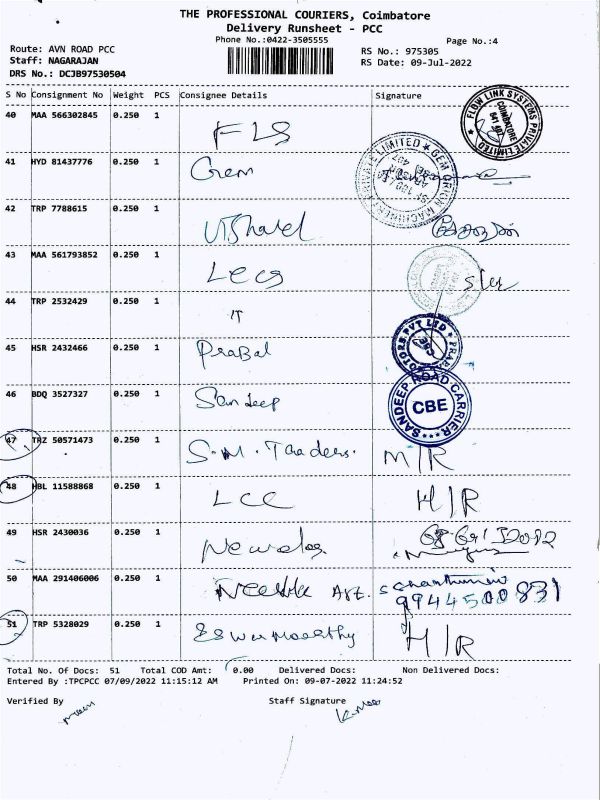 THE PROFESSIONAL COURIERS, Coimbatore
Delivery Runsheet - PCC
Phone No.:0422-3505555
Page No.:4
Route: AVN ROAD PCC
RS No.: 975305
Staff: NAGARAJAN
RS Date: 09-Jul-2022
DRS No.: DCJB97530504
S No Consignment No Weight PCS Consignee Details Signature
40 MAA 566302845 0.250 1 FLS
FLOW LINK SYSTEMS PRIVATE LIMITED COIMBATORE 641 407
41 HYD 81437776 0.250 1 Gem
GEM ORION MACHINERY PRIVATE LIMITED
42 TRP 7788615 0.250 1
43 MAA 561793852 0.250 1 Lecs
44 TRP 2532429 0.250 1 IT
45 HSR 2432466 0.250 1 Prabal
MOTORS PVT LTD CBE
46 BDQ 3527327 0.250 1 Sandeep
SANDEEP ROAD CARRIER CBE
47 TRZ 50571473 0.250 1 S.M. Traders. M/R
48 HBL 11588868 0.250 1 LCC H/R
49 HSR 2430036 0.250 1
50 MAA 291406006 0.250 1 9944500831
51 TRP 5328029 0.250 1 Eswer Moorthy H/R
Total No. Of Docs: 51 Total COD Amt: 0.00 Delivered Docs: Non Delivered Docs:
Entered By :TPCPCC 07/09/2022 11:15:12 AM Printed On: 09-07-2022 11:24:52
Verified By Staff Signature